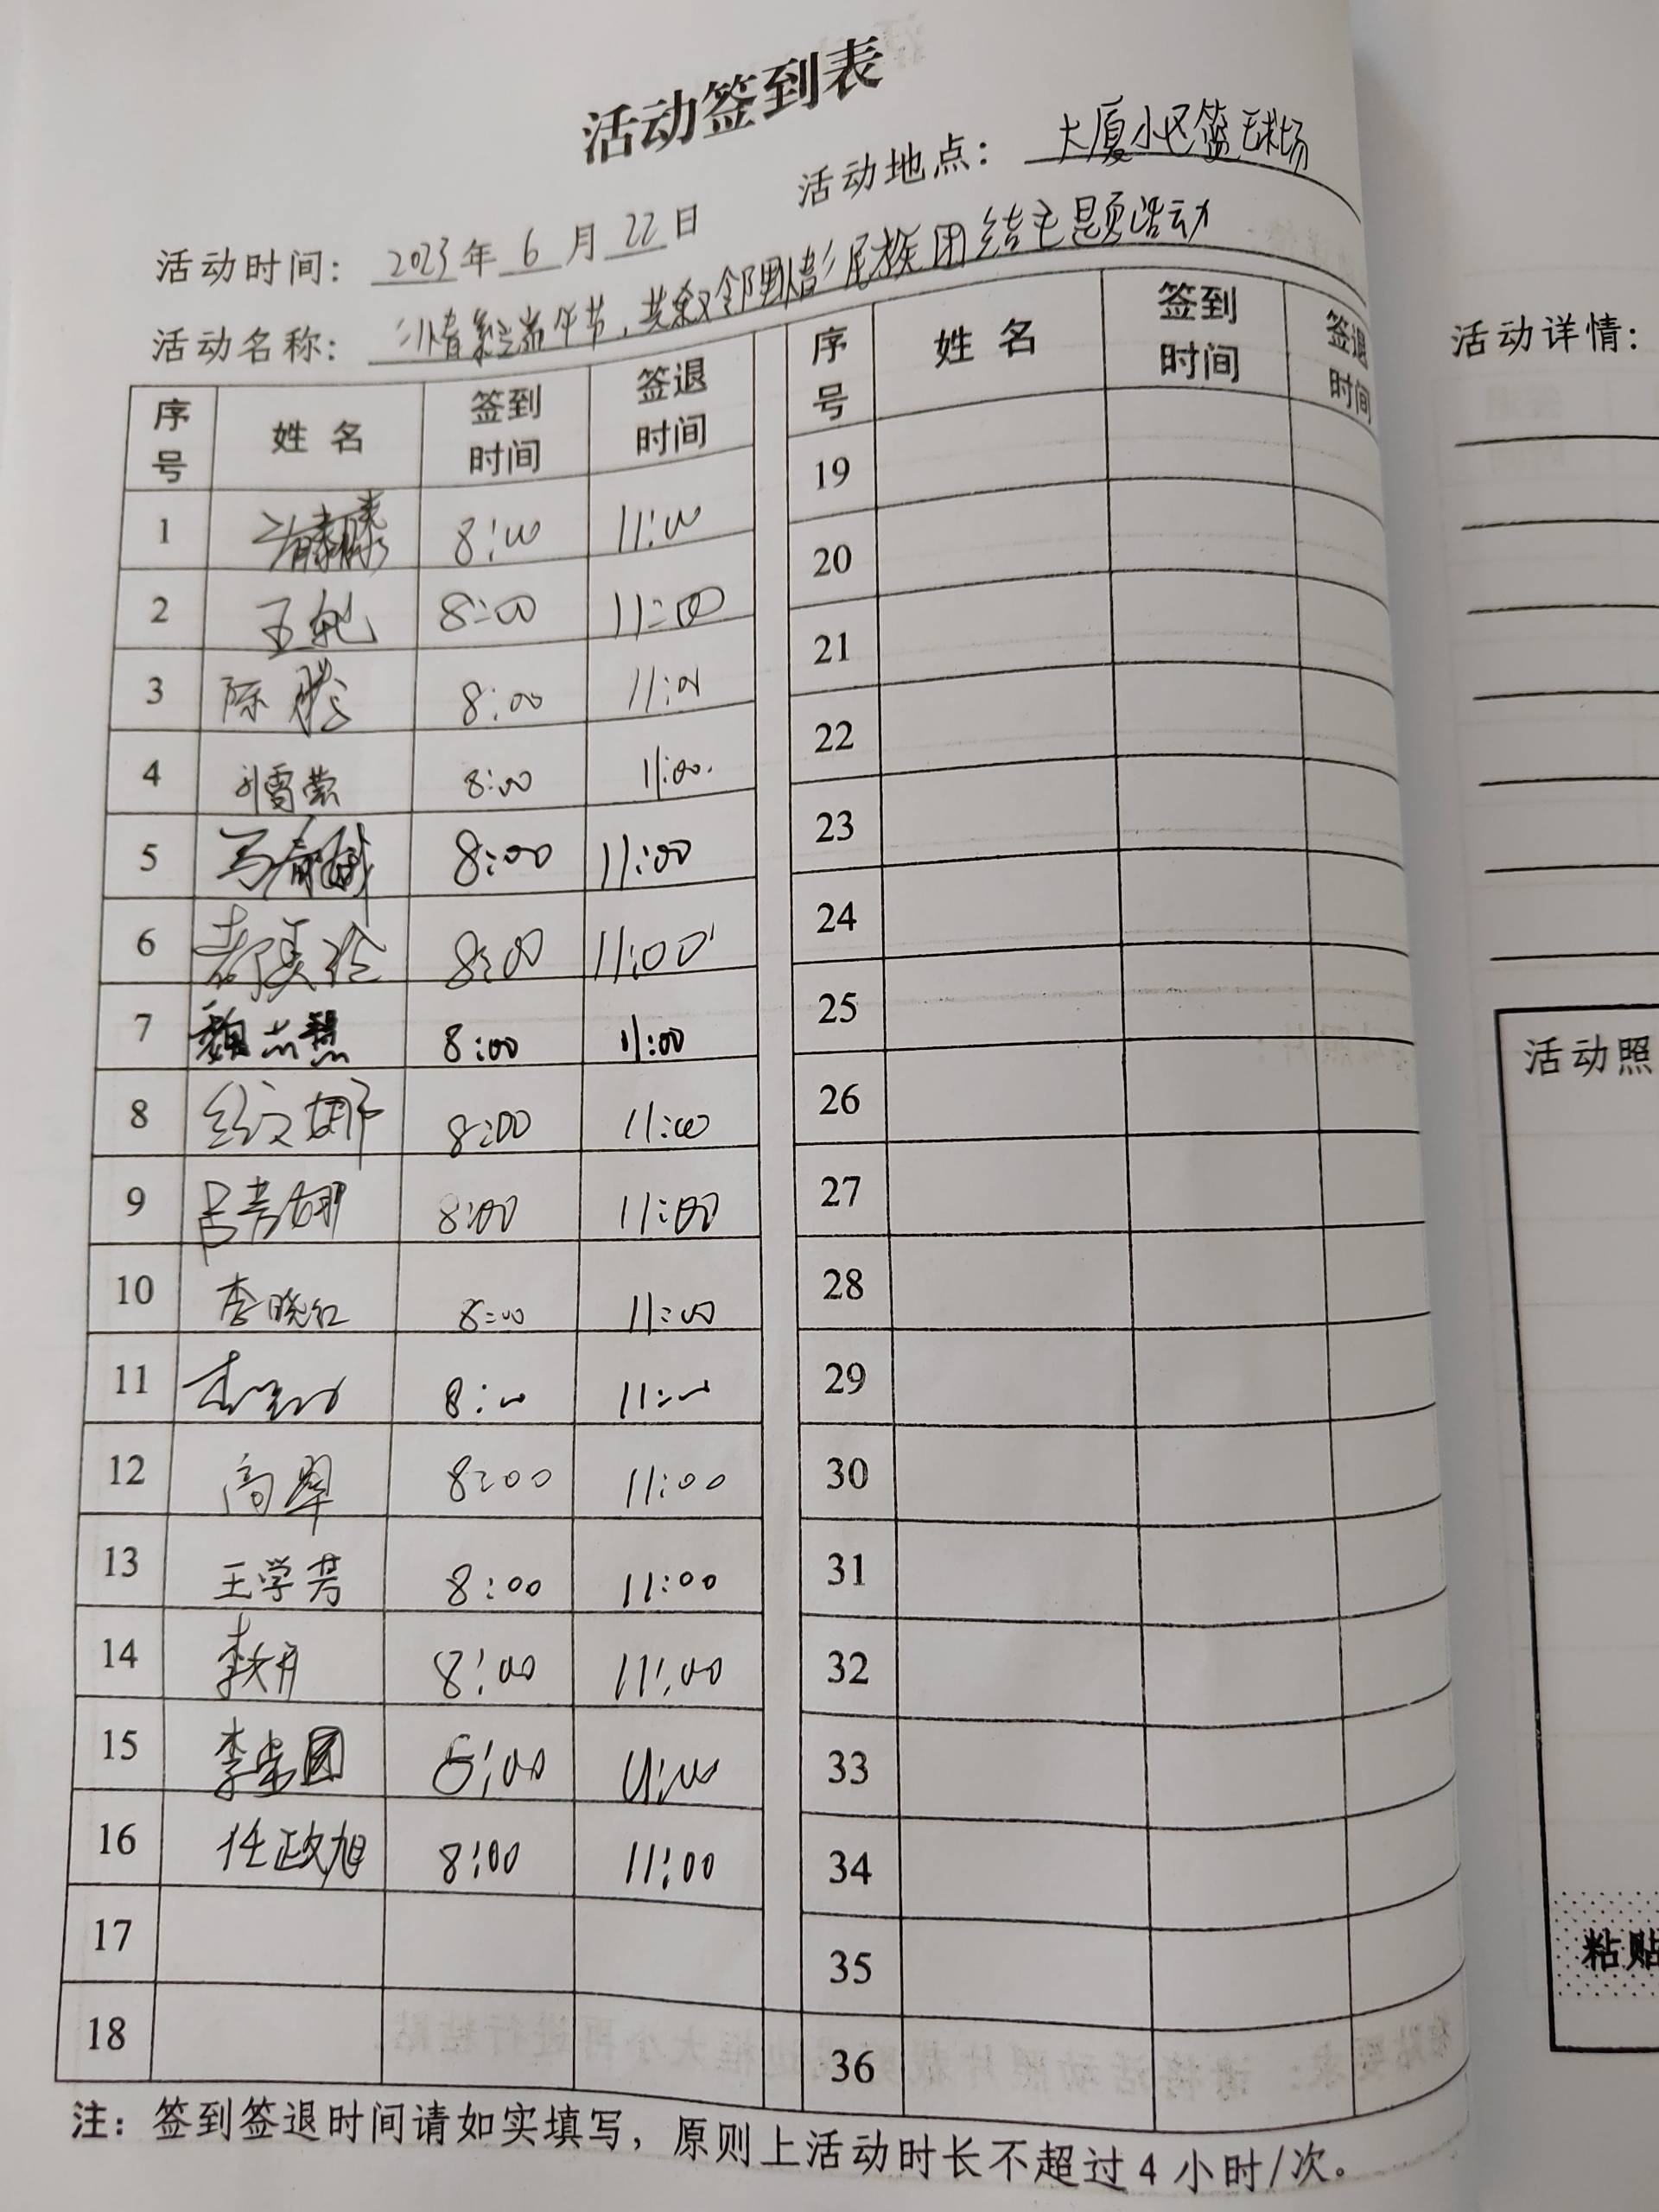 活动签到表
活动时间：2023年6月22日 活动地点：大厦小区篮球场
活动名称：端午节，共叙邻里情民族团结主题活动
序号 姓名 签到时间 签退时间 序号 姓名 签到时间 签退时间
1 8:00 11:00 19
2 8:00 11:00 20
3 陈 8:00 11:00 21
4 刘雪莹 8:00 11:00. 22
5 马 8:00 11:00 23
6 8:00 11:00 24
7 魏 8:00 11:00 25
8 文娜 8:00 11:00 26
9 吕芳娜 8:00 11:00 27
10 李晓红 8:00 11:00 28
11 8:00 11:00 29
12 高翠 8:00 11:00 30
13 王学芳 8:00 11:00 31
14 李 8:00 11:00 32
15 李 :00 11:00 33
16 任政旭 8:00 11:00 34
17 35
18 36
注：签到签退时间请如实填写，原则上活动时长不超过4小时/次。
活动详情：
活动照
粘贴